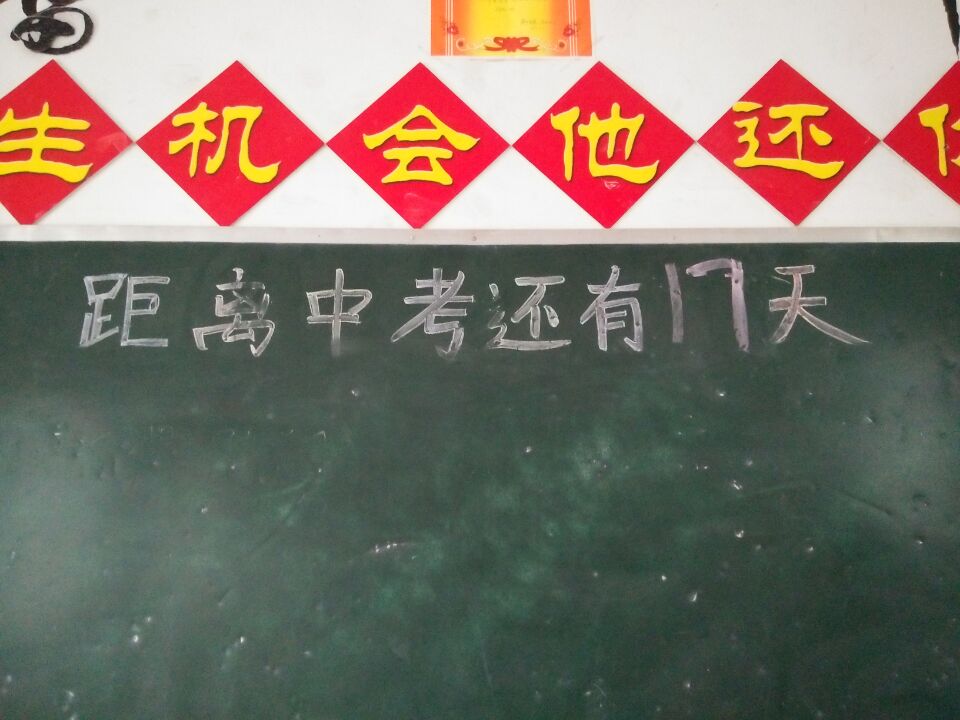 生机会他还
距离中考还有17天